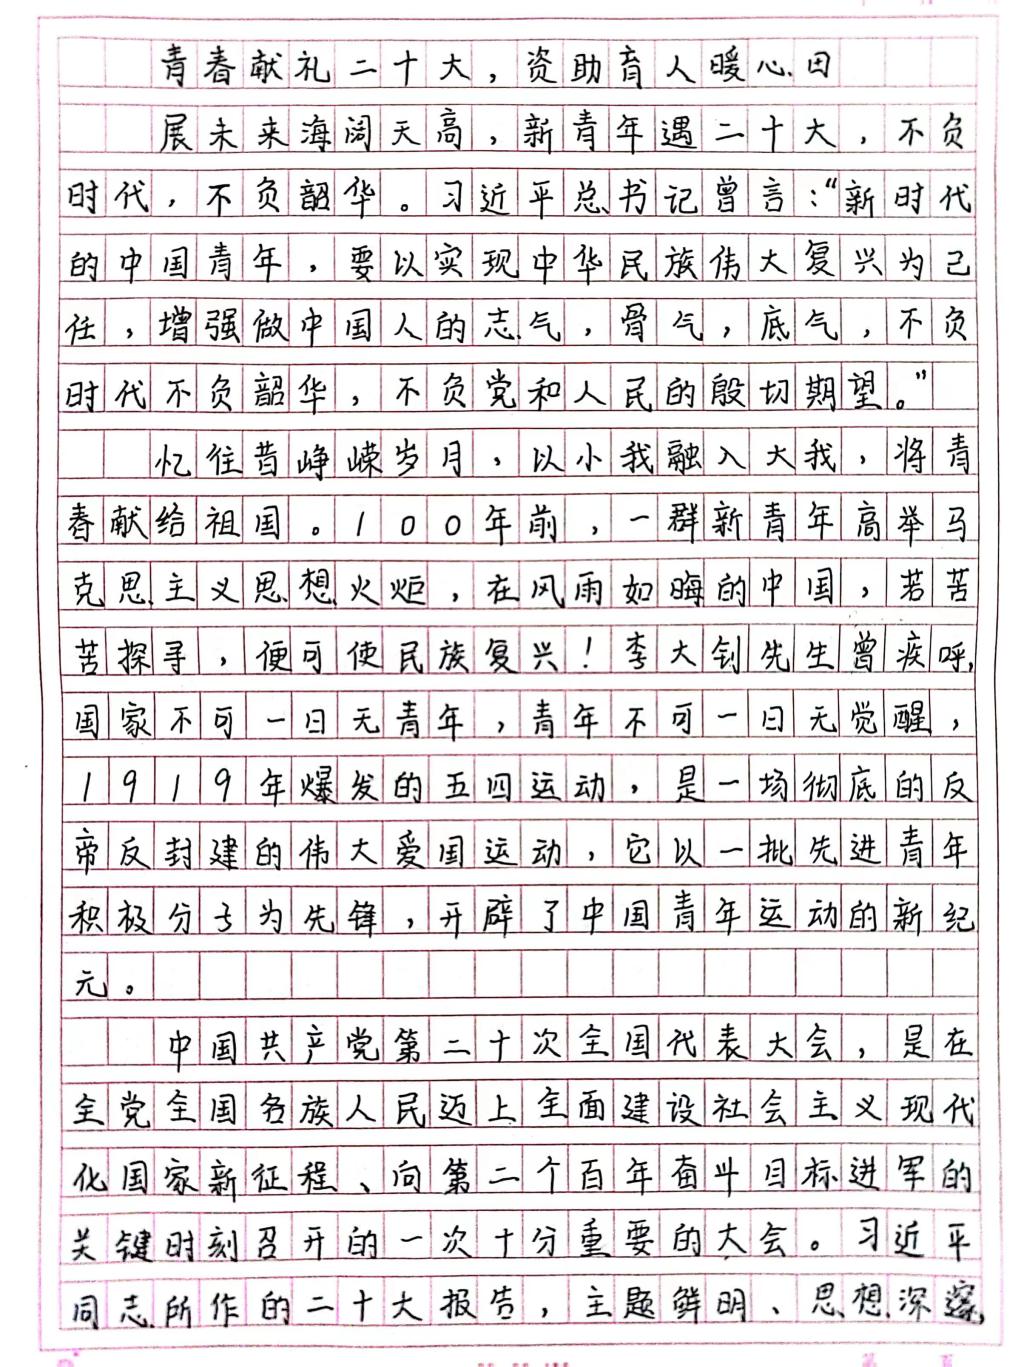 青春献礼二十大，资助育人暖心田
展未来海阔天高，新青年遇二十大，不负
时代，不负韶华。习近平总书记曾言：“新时代
的中国青年，要以实现中华民族伟大复兴为己
任，增强做中国人的志气，骨气，底气，不负
时代不负韶华，不负党和人民的殷切期望。”
忆往昔峥嵘岁月，以小我融入大我，将青
春献给祖国。100年前，一群新青年高举马
克思主义思想火炬，在风雨如晦的中国，若苦
苦探寻，便可使民族复兴！李大钊先生曾疾呼，
国家不可一日无青年，青年不可一日无觉醒，
1919年爆发的五四运动，是一场彻底的反
帝反封建的伟大爱国运动，它以一批先进青年
积极分子为先锋，开辟了中国青年运动的新纪
元。
中国共产党第二十次全国代表大会，是在
全党全国各族人民迈上全面建设社会主义现代
化国家新征程、向第二个百年奋斗目标进军的
关键时刻召开的一次十分重要的大会。习近平
同志所作的二十大报告，主题鲜明、思想深邃，